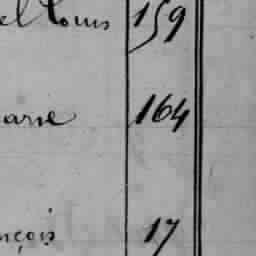 el Louis 159
arie 164
nçois 17